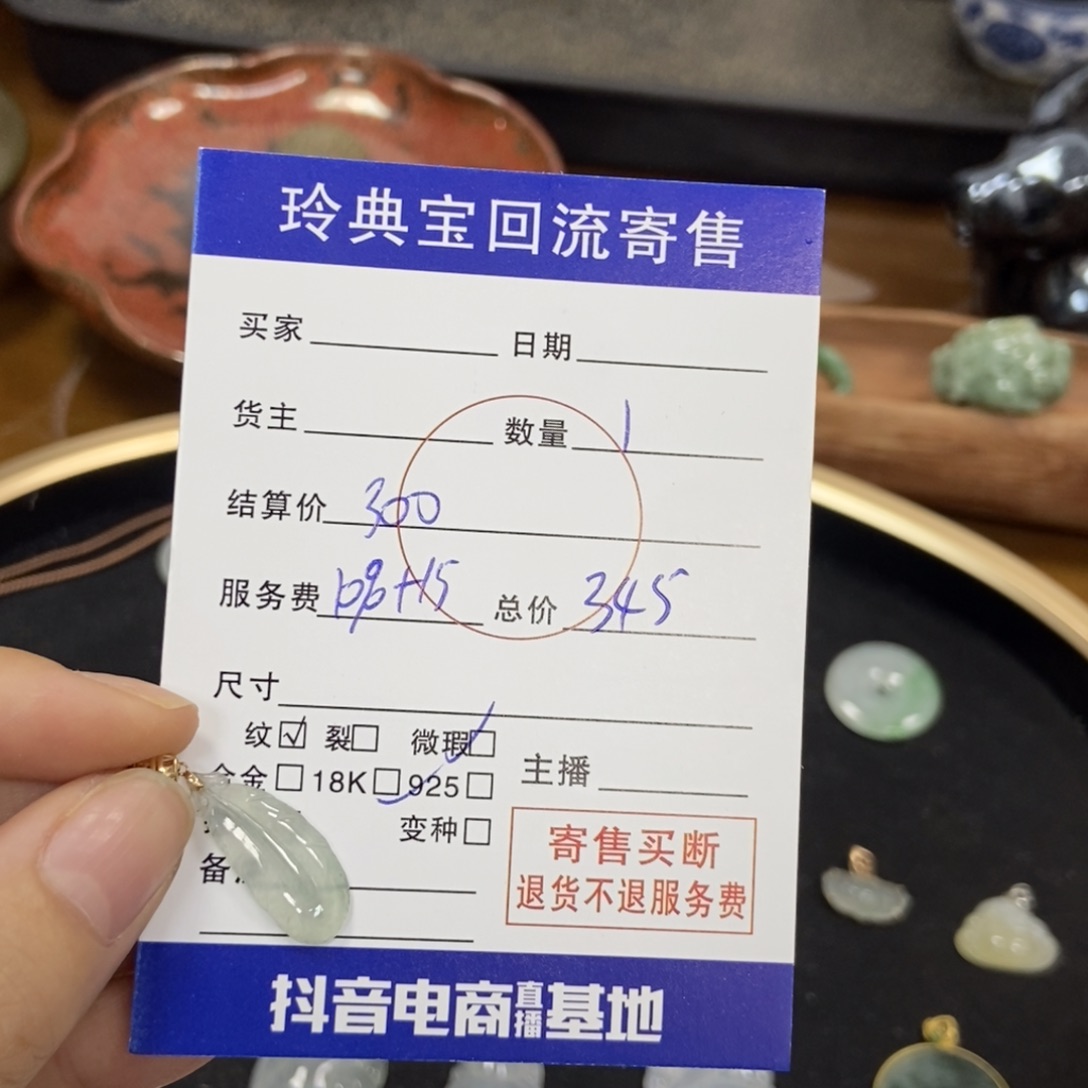 玲典宝回流寄售
买家 日期
货主 数量 1
结算价 300
服务费 10%+15 总价 345
尺寸
纹☑ 裂□ 微瑕☑
金□ 18K☑ 925□
变种□
主播
备
寄售买断
退货不退服务费
抖音电商直播基地